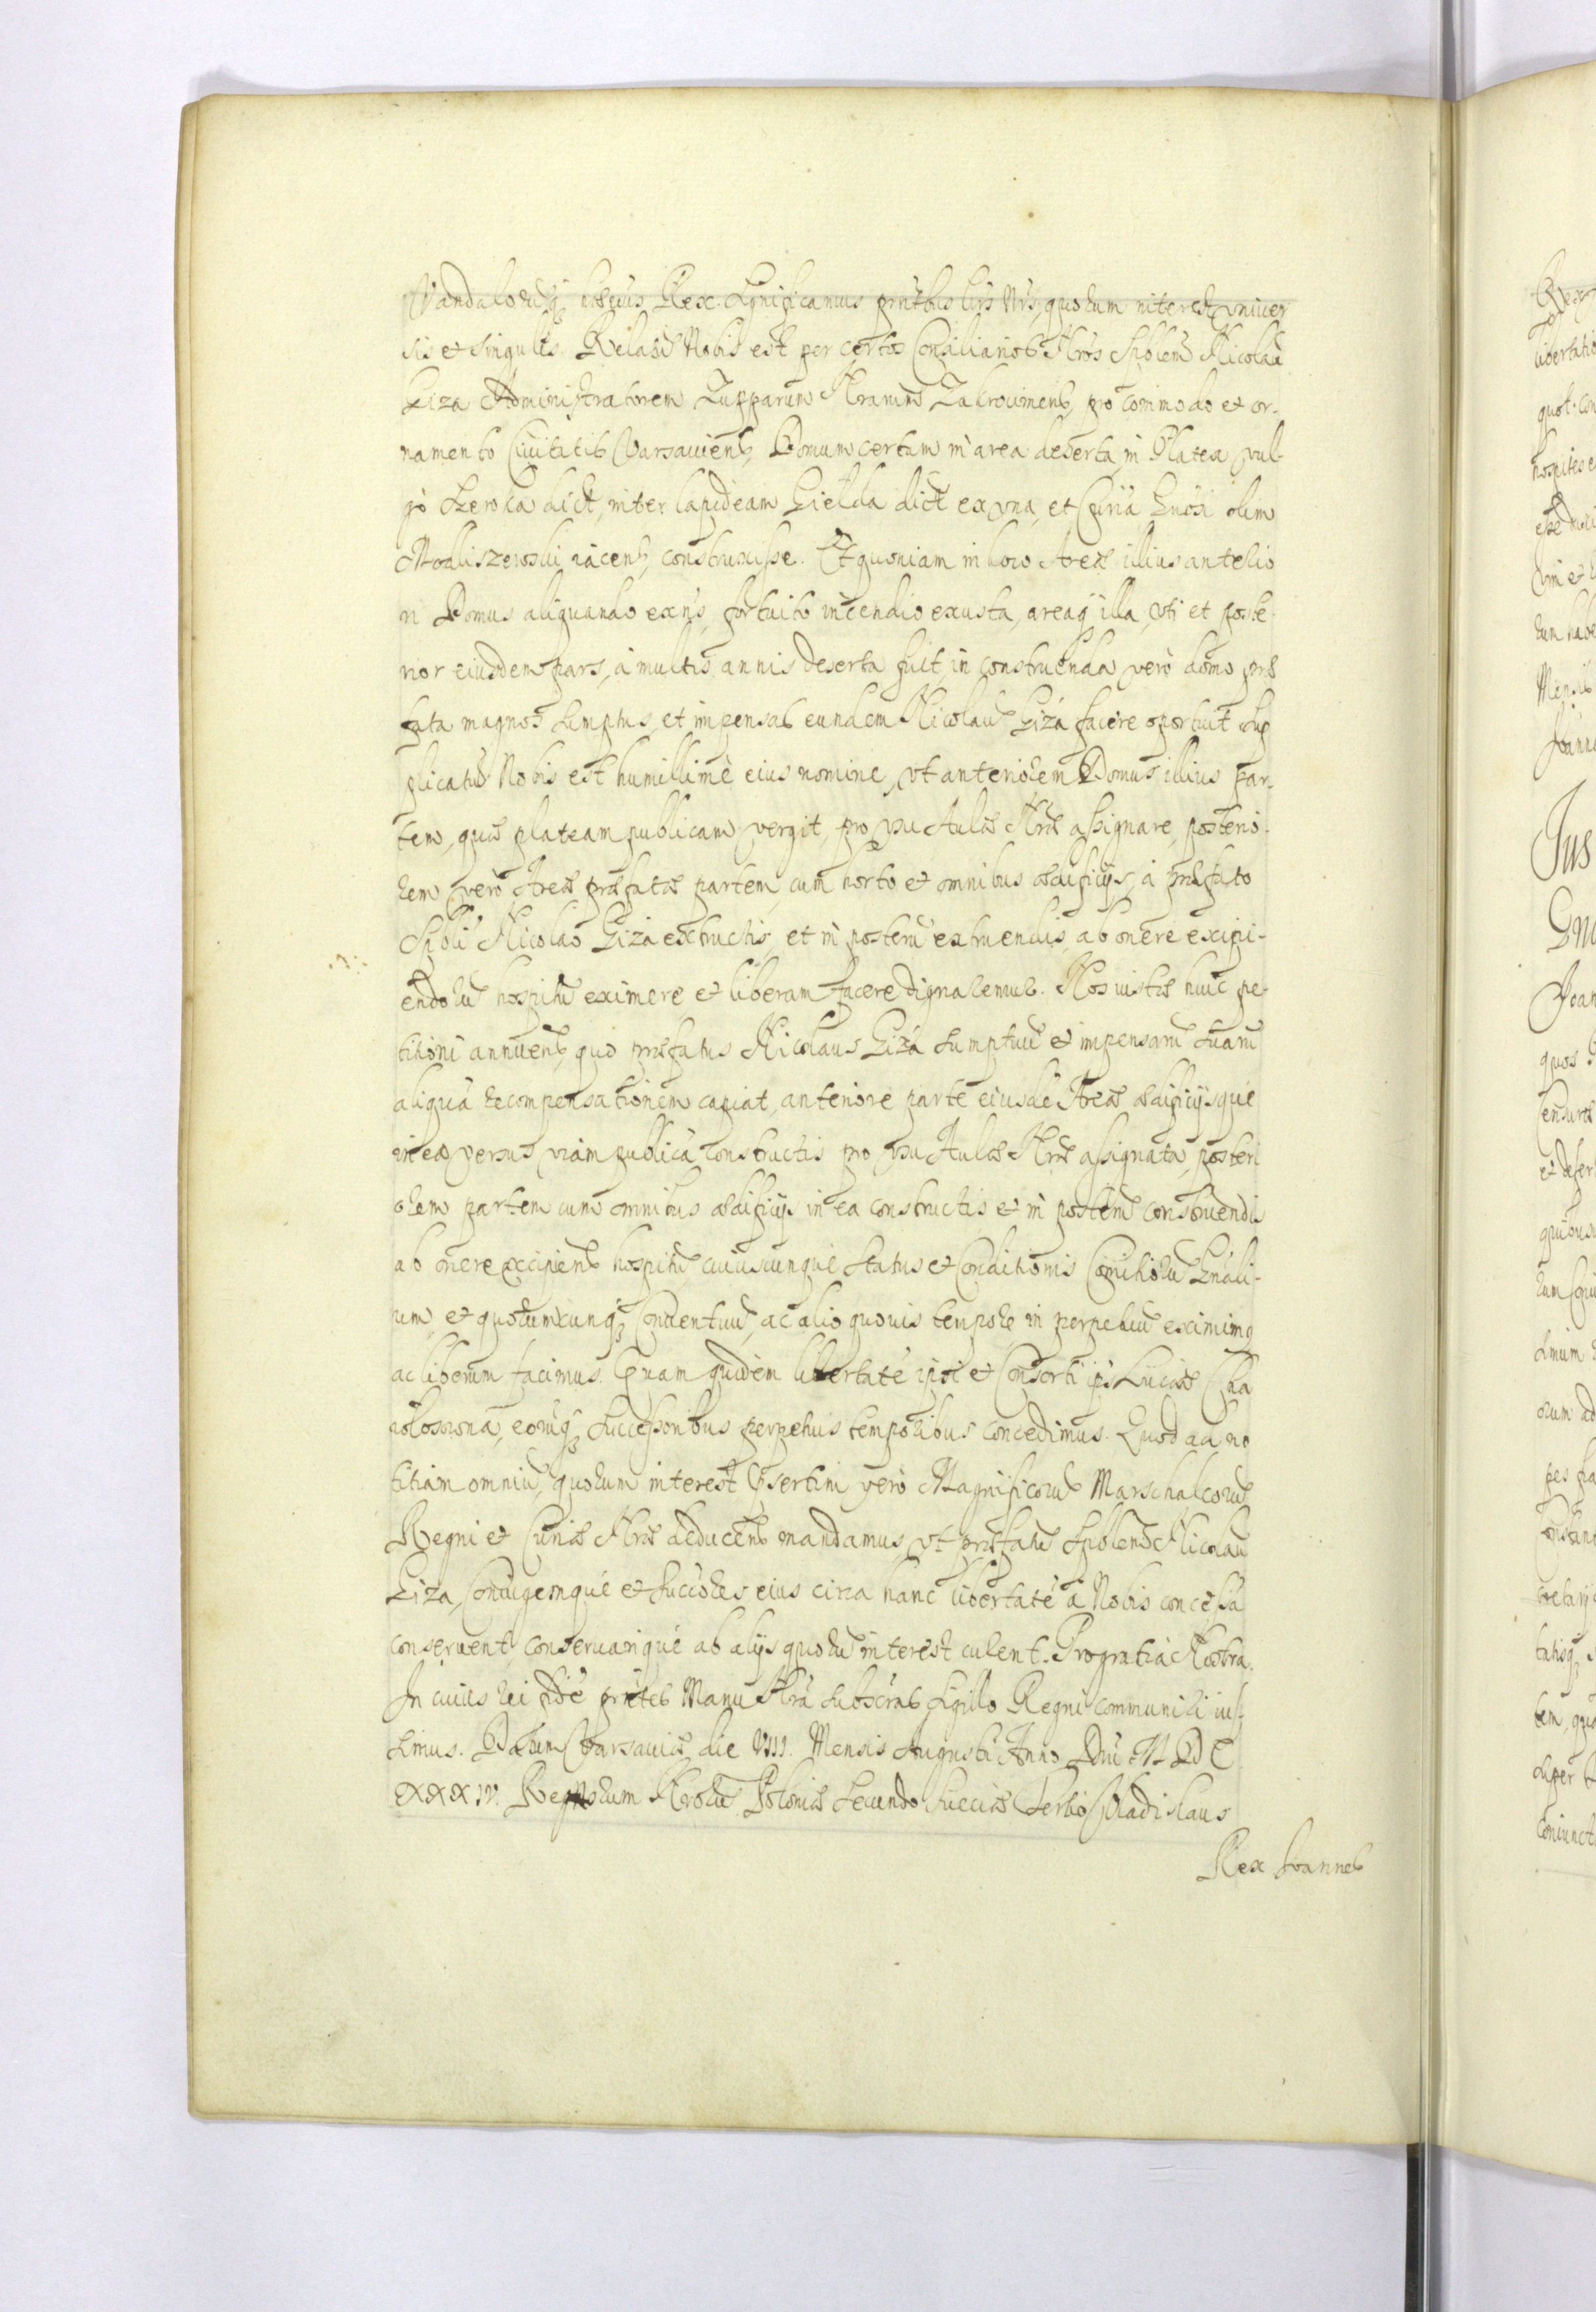 Vandalorumq hrēus Rex. Significamus prntbus lrīs Nrīs, quorum interest, univer
sis et singulis. Relatū Nobis est per certos Consiliarios Nr̄os Spblem̄ Nicolaū
Giza Administratorem Zupparum Nrarum Zakrocimens, pro commodo et or-
namento Ciuitatis Varsauiens, Domum certam in area deserta, in Platea vul-
gò Szeroka dict, inter lapideam Gielda dict ex vna, et Curiā Gn̄osi olim
iacens, construxisse. Et quoniam in loco Areæ illius anterio
ri Domus aliquando ex n̄s, fortuito incendio exusta, areaq illa, vti et poste-
rior eiusdem pars, à multis annis deserta fuit, in construenda verò domo præ
fata magnos sumptus, et impensas eundem Nicolaū Giza facere oportuit Sup
plicatū Nobis est humillimè eius nomine, vt anteriorem Domus illius par-
tem, quæ plateam publicam vergit, pro vsu Aulæ Nræ assignare, posterio-
rem verò Areæ præfatæ partem, cum horto et omnibus ædificijs, à præfato
Spbli Nicolao Giza extructis, et in posterū extruendis, ab onere excipi-
endorū hospitū eximere, et liberam facere dignaremur. Nos iustæ huic pe-
titioni annuens, quo præfatus Nicolaus Giza sumptuū et impensarū suarū
aliquā recompensationem capiat, anteriore parte eiusdē Areæ ædificijsque
in ea versus viam publicā constructis pro vsu Aulæ Nræ assignata, posteri
orem partem cum omnibus ædificijs in ea constructis et in posterū construendis
ab onere excipiens hospitū cuiuscunque status et Conditionis Comitiorū Gn̄ali-
um, et quorumcunq Conuentuū, ac alio quouis tempore in perpetuū eximimq
ac liberum facimus. Quam quidem libertatē ipsi et Consorti ips Luciæ Cha
eorumq Successoribus perpetuis temporibus concedimus. Quod ad no
titiam omniū, quorum interest, Psertim verò Magnificorū Marschalcorū
Regni et Curiæ Nræ deducens mandamus, vt præfatū Spblem̄ Nicolaū
Giza, Coniugemque et Succōres eius circa hanc libertatē à Nobis concessā
conseruent, conseruarique ab alijs quorū interest curent. Pro gratia Nostra.
In cuius rei fidē prn̄tes Manu Nrā subscras Sigillo Regni communiri ius-
simus. Datum Varsauiæ die VIII. Mensis Augusti Anno Dni MDC
XXXIV. Regnorum Nrorū Poloniæ Secundo Sueciæ Tertio Vladislaus
Rex Ioannes